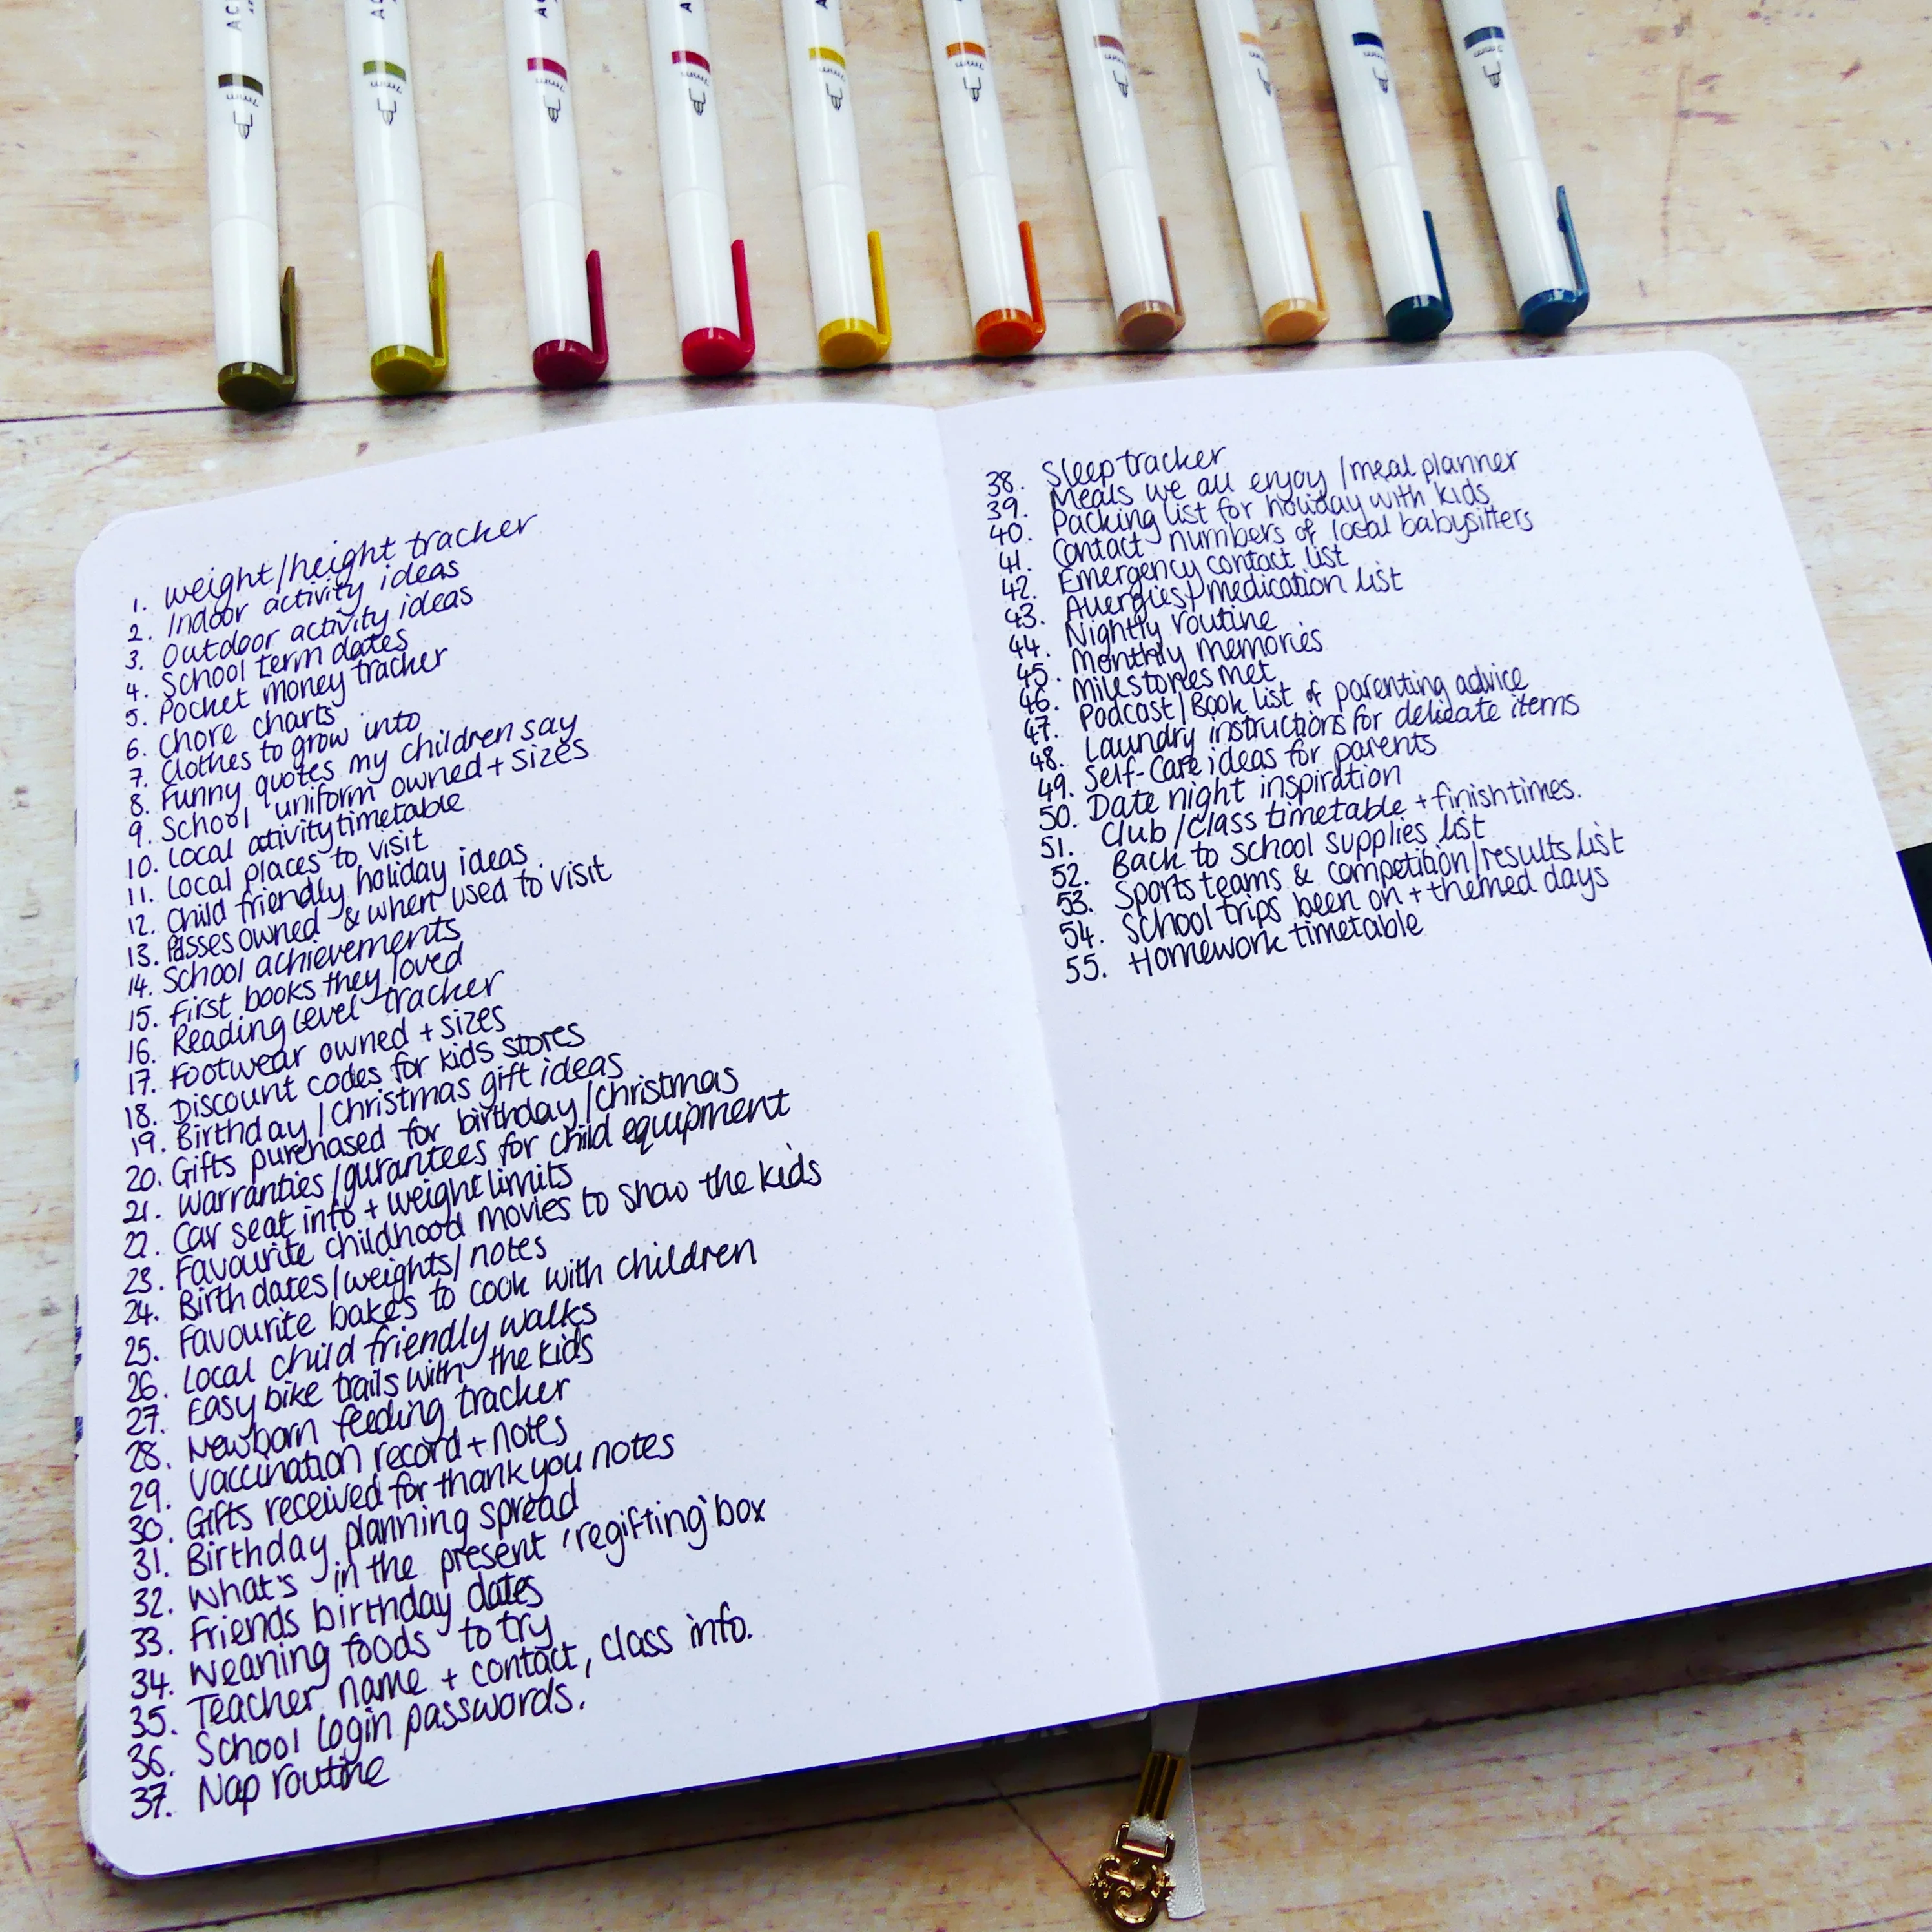 AC
AC
AC
AC
A
1. Weight/height tracker
2. Indoor activity ideas
3. Outdoor activity ideas
4. School term dates
5. Pocket money tracker
6. Chore charts
7. Clothes to grow into
8. Funny quotes my children say
9. School uniform owned + sizes
10. Local activity timetable
11. Local places to visit
12. Child friendly holiday ideas
13. Passes owned & when used to visit
14. School achievements
15. First books they loved
16. Reading level tracker
17. Footwear owned + sizes
18. Discount codes for kids stores
19. Birthday/Christmas gift ideas
20. Gifts purchased for birthday/Christmas
21. Warranties/gurantees for child equipment
22. Car seat info + weight limits
23. Favourite childhood movies to show the kids
24. Birth dates/weights/notes
25. Favourite bakes to cook with children
26. Local child friendly walks
27. Easy bike trails with the kids
28. Newborn feeding tracker
29. Vaccination record + notes
30. Gifts received for thank you notes
31. Birthday planning spread
32. What's in the present 'regifting' box
33. Friends birthday dates
34. Weaning foods to try
35. Teacher name + contact, class info.
36. School login passwords.
37. Nap routine
38. Sleep tracker
39. Meals we all enjoy/meal planner
40. Packing list for holiday with kids
41. Contact numbers of local babysitters
42. Emergency contact list
43. Allergies/medication list
44. Nightly routine
45. Monthly memories
46. Milestones met
47. Podcast/Book list of parenting advice
48. Laundry instructions for delicate items
49. Self-care ideas for parents
50. Date night inspiration
51. Club/class timetable + finish times.
52. Back to school supplies list
53. Sports teams & competition/results list
54. School trips been on + themed days
55. Homework timetable